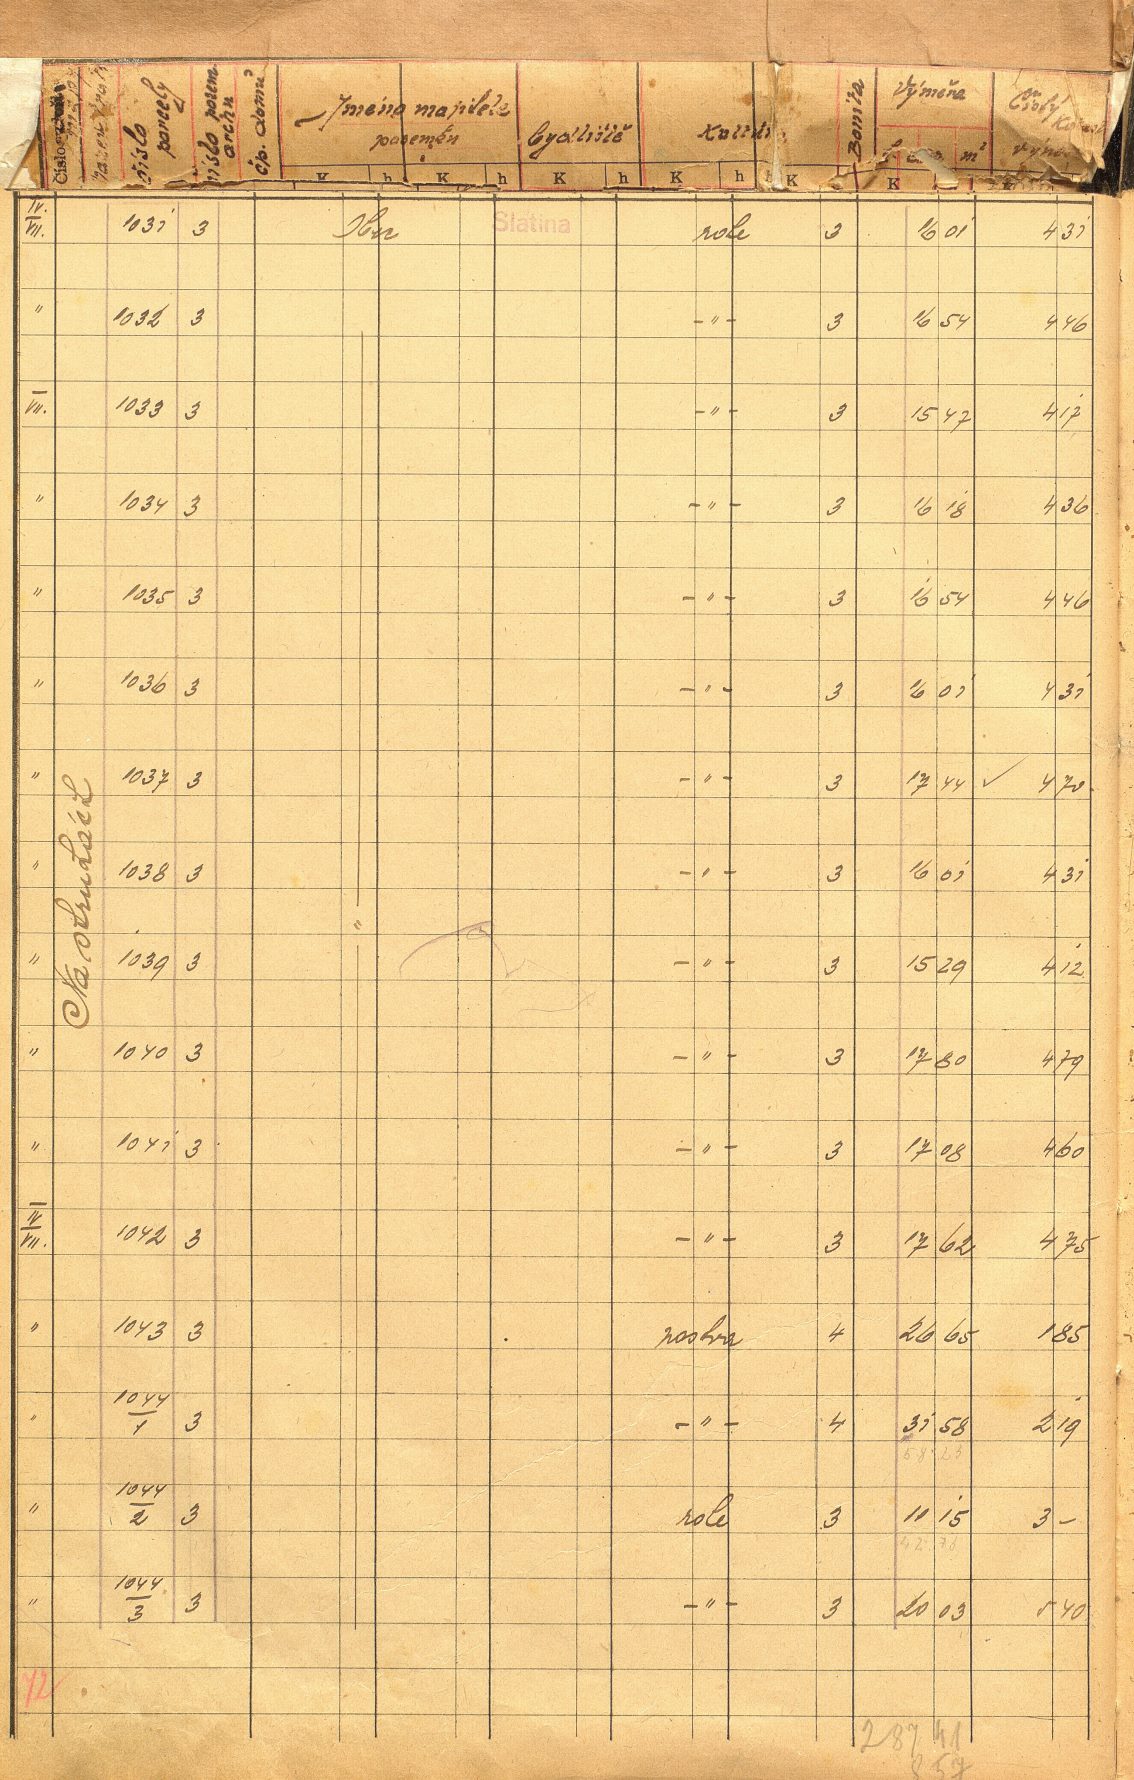 číslo parcely
číslo pozem. archu
čp. domu
Jméno majitele pozemku
bydliště
Bonita
Výměra
m²
Čistý
K h K h K h K h K K
IV. VII. 1031 3 Obec Slatina role 3 16 01 4 31
" 1032 3 -"- 3 16 54 4 46
VII. 1033 3 -"- 3 15 47 4 17
" 1034 3 -"- 3 16 18 4 36
" 1035 3 -"- 3 16 54 4 46
" 1036 3 -"- 3 16 01 4 31
" 1037 3 -"- 3 17 44 ✓ 4 70
" 1038 3 -"- 3 16 01 4 31
" 1039 3 " -"- 3 15 29 4 12
" 1040 3 -"- 3 17 80 4 79
" 1041 3 -"- 3 17 08 4 60
IV VII. 1042 3 -"- 3 17 62 4 75
" 1043 3 pastva 4 26 65 1 85
" 1044/1 3 -"- 4 31 58 2 19
58 23
" 1044/2 3 role 3 11 15 3 –
" 1044/3 3 -"- 3 20 03 5 40
72
287 41